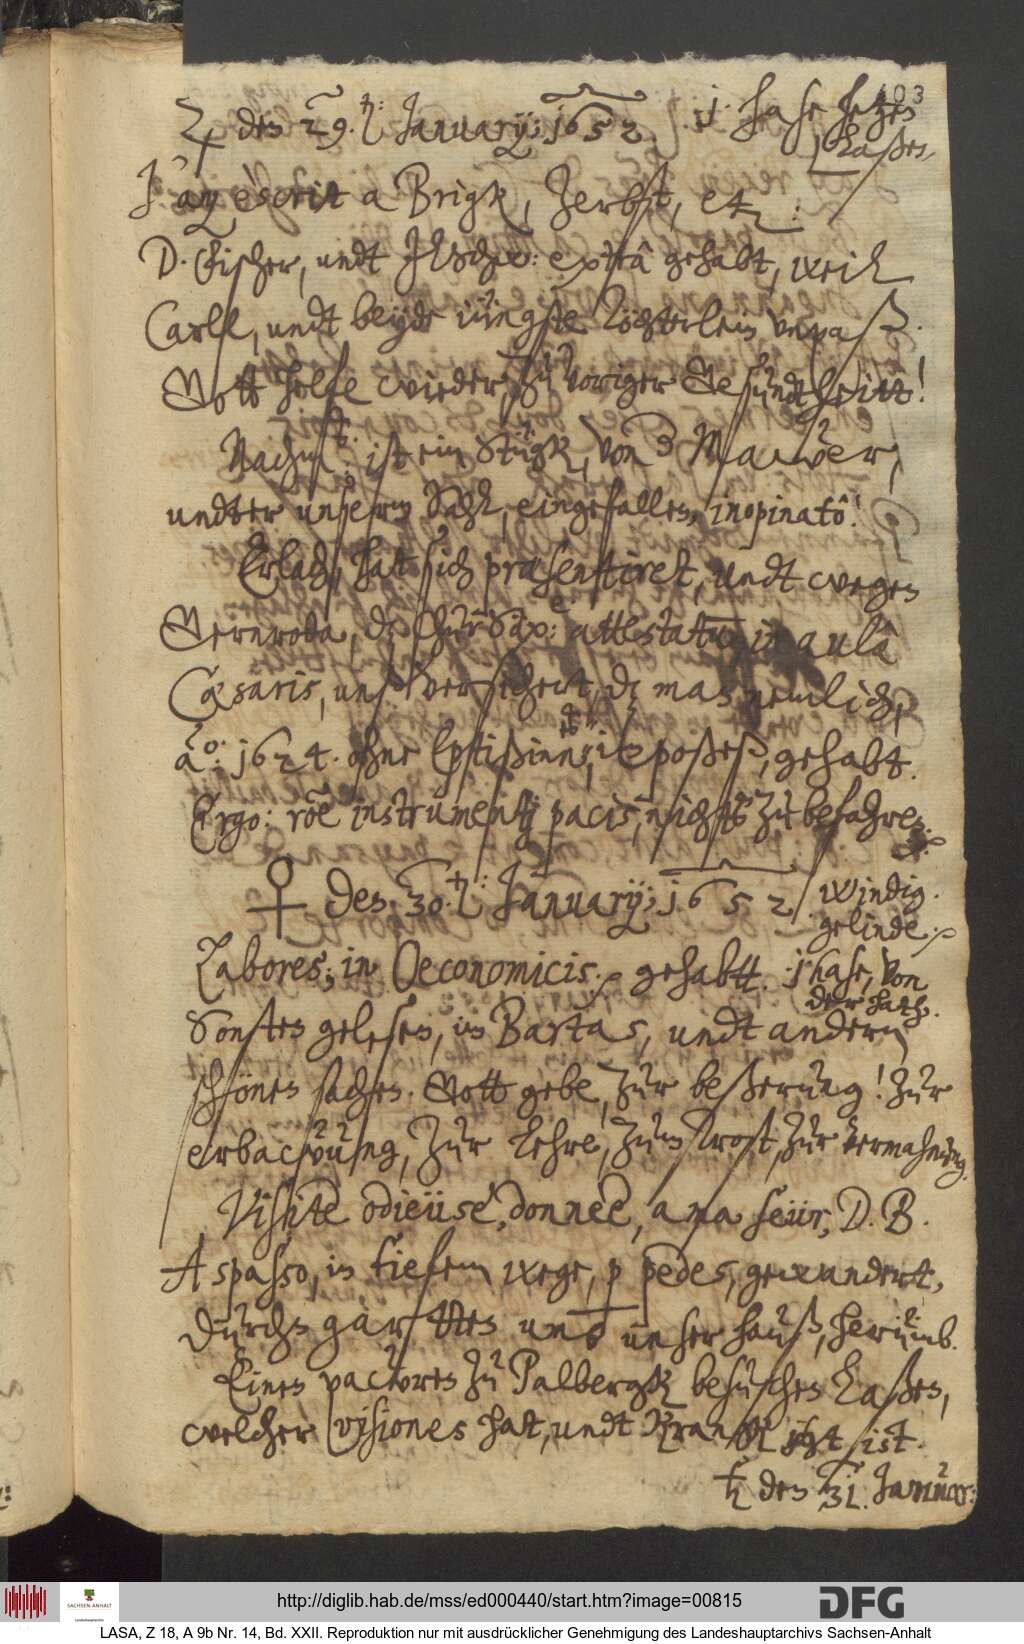 403
♃ den 29. t: January; 1652. 1. hase hetzen
laßen,
J'ay escrit a Brigk, Zerbst, etc:
D. Fischer, undt J. Löscher: extra gehabt, weil
Carll, undt beyde iüngste Töchterlein unpaß.
Gott helfe wieder, zu voriger Gesundtheitt!
Nachm: ist ein Stügk, von der Mawer,
undter unserm Sahl, eingefallen, inopinatò!
Erlach, hat sich præsentiret, undt wegen
Gernroda, die ChurSäx: attestatum in aula
Cæsaris, unß versichert, daß man nemlich,
ao: 1624. ohne Eptißinn, die poßeß, gehabt.
Ergo: rõe instrumenti pacis, nichts zu befahren.
♀ den 30. t: January; 1652. windig.
gelinde.
Labores; in Oeconomicis. gehabtt. 1 hase, von
der hatz.
Sonsten gelesen, in Bartas, undt andern
schönen sachen. Gott gebe, zur beßerung! zur
erbawung, zur Lehre, zum Trost, zur Vermahnung.
Visite odieuse, donnee, a ma seur, D. B.
A spasso, in tiefem wege, p pedes, gewandert,
durchn gartten und unser hauß, herumb.
Einen pawren zu Palbergk besuchen laßen,
welcher visiones hat, undt Krangk itzt ist.
♄ den 31. Januar:
http://diglib.hab.de/mss/ed000440/start.htm?image=00815
DFG
SACHSEN-ANHALT
Landeshauptarchiv
LASA, Z 18, A 9b Nr. 14, Bd. XXII. Reproduktion nur mit ausdrücklicher Genehmigung des Landeshauptarchivs Sachsen-Anhalt